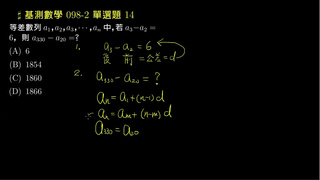 ♯ 基測數學 098-2 單選題 14
等差數列 a₁, a₂, a₃, ⋯, aₙ 中, 若 a₃ − a₂ =
6, 則 a₃₃₀ − a₂₀ =?
(A) 6
(B) 1854
(C) 1860
(D) 1866
1. a₃ − a₂ = 6
後 前 = 公差 = d
2. a₃₃₀ − a₂₀ = ?
aₙ = a₁ + (n−1) d
∴ aₙ = aₘ + (n−m) d
a₃₃₀ = a₂₀